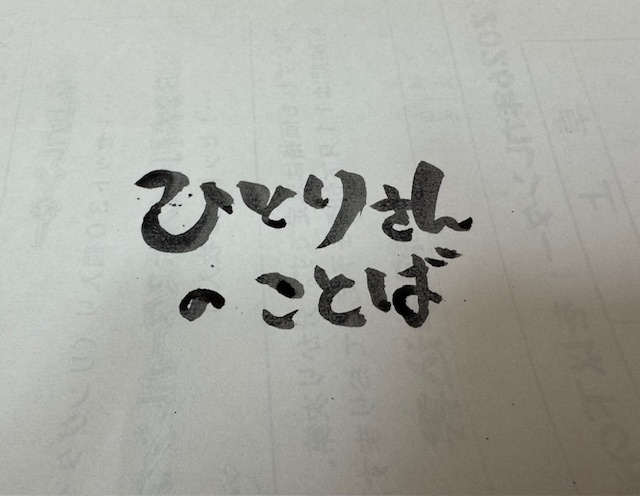 ひとりさん
のことば